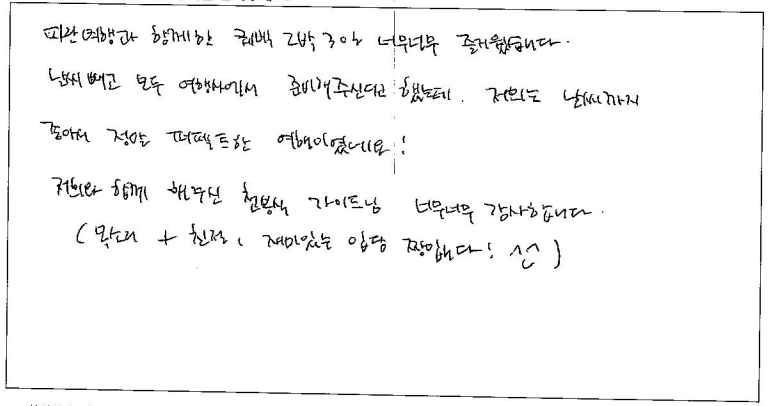 파란여행과 함께한 퀘벡 2박 3일 너무너무 즐거웠습니다.
날씨 빼고 모두 여행사에서 준비해주신다고 했는데. 저희는 날씨까지
좋아서 정말 퍼펙트한 여행이였네요!
저희와 함께 해주신 천봉식 가이드님 너무너무 감사합니다.
(목소리 + 친절, 재미있는 입담 짱입니다! ^^)